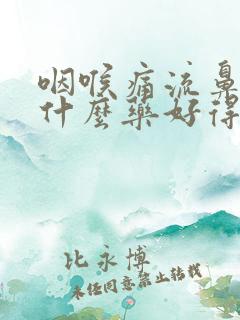 咽喉痛流鼻
什麼藥好得
比永博
未经同意禁止转载